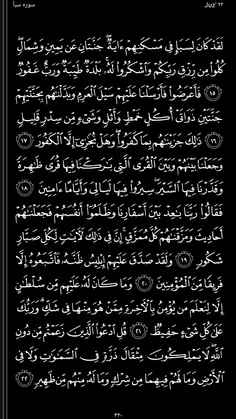 سورة سبأ
جزء ٢٢
لَقَدْ كَانَ لِسَبَإٍ فِى مَسْكَنِهِمْ ءَايَةٌ ۖ جَنَّتَانِ عَن يَمِينٍ وَشِمَالٍ ۖ
كُلُوا۟ مِن رِّزْقِ رَبِّكُمْ وَٱشْكُرُوا۟ لَهُۥ ۚ بَلْدَةٌ طَيِّبَةٌ وَرَبٌّ غَفُورٌ
١٥ فَأَعْرَضُوا۟ فَأَرْسَلْنَا عَلَيْهِمْ سَيْلَ ٱلْعَرِمِ وَبَدَّلْنَـٰهُم بِجَنَّتَيْهِمْ
جَنَّتَيْنِ ذَوَاتَىْ أُكُلٍ خَمْطٍ وَأَثْلٍ وَشَىْءٍ مِّن سِدْرٍ قَلِيلٍ
١٦ ذَٰلِكَ جَزَيْنَـٰهُم بِمَا كَفَرُوا۟ ۖ وَهَلْ نُجَـٰزِىٓ إِلَّا ٱلْكَفُورَ ١٧
وَجَعَلْنَا بَيْنَهُمْ وَبَيْنَ ٱلْقُرَى ٱلَّتِى بَـٰرَكْنَا فِيهَا قُرًى ظَـٰهِرَةً
وَقَدَّرْنَا فِيهَا ٱلسَّيْرَ ۖ سِيرُوا۟ فِيهَا لَيَالِىَ وَأَيَّامًا ءَامِنِينَ ١٨
فَقَالُوا۟ رَبَّنَا بَـٰعِدْ بَيْنَ أَسْفَارِنَا وَظَلَمُوٓا۟ أَنفُسَهُمْ فَجَعَلْنَـٰهُمْ
أَحَادِيثَ وَمَزَّقْنَـٰهُمْ كُلَّ مُمَزَّقٍ ۚ إِنَّ فِى ذَٰلِكَ لَـَٔايَـٰتٍ لِّكُلِّ صَبَّارٍ
شَكُورٍ ١٩ وَلَقَدْ صَدَّقَ عَلَيْهِمْ إِبْلِيسُ ظَنَّهُۥ فَٱتَّبَعُوهُ إِلَّا
فَرِيقًا مِّنَ ٱلْمُؤْمِنِينَ ٢٠ وَمَا كَانَ لَهُۥ عَلَيْهِم مِّن سُلْطَـٰنٍ
إِلَّا لِنَعْلَمَ مَن يُؤْمِنُ بِٱلْـَٔاخِرَةِ مِمَّنْ هُوَ مِنْهَا فِى شَكٍّ ۗ وَرَبُّكَ
عَلَىٰ كُلِّ شَىْءٍ حَفِيظٌ ٢١ قُلِ ٱدْعُوا۟ ٱلَّذِينَ زَعَمْتُم مِّن دُونِ
ٱللَّهِ ۖ لَا يَمْلِكُونَ مِثْقَالَ ذَرَّةٍ فِى ٱلسَّمَـٰوَٰتِ وَلَا فِى
ٱلْأَرْضِ وَمَا لَهُمْ فِيهِمَا مِن شِرْكٍ وَمَا لَهُۥ مِنْهُم مِّن ظَهِيرٍ ٢٢
٤٣٠